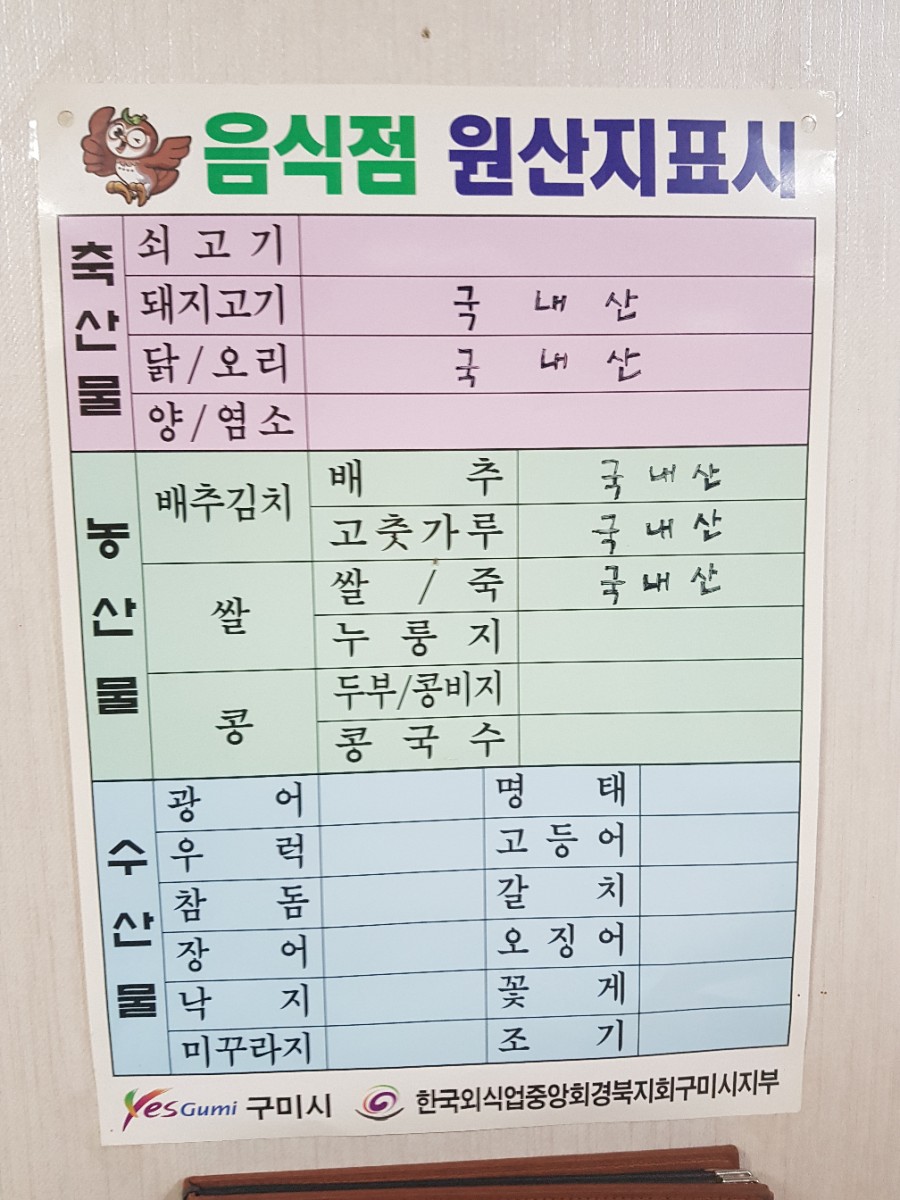 음식점 원산지표시
축산물
쇠고기
돼지고기 국내산
닭/오리 국내산
양/염소
농산물
배추김치
배추 국내산
고춧가루 국내산
쌀
쌀/죽 국내산
누룽지
콩
두부/콩비지
콩국수
수산물
광어 명태
우럭 고등어
참돔 갈치
장어 오징어
낙지 꽃게
미꾸라지 조기
YesGumi 구미시 한국외식업중앙회경북지회구미시지부